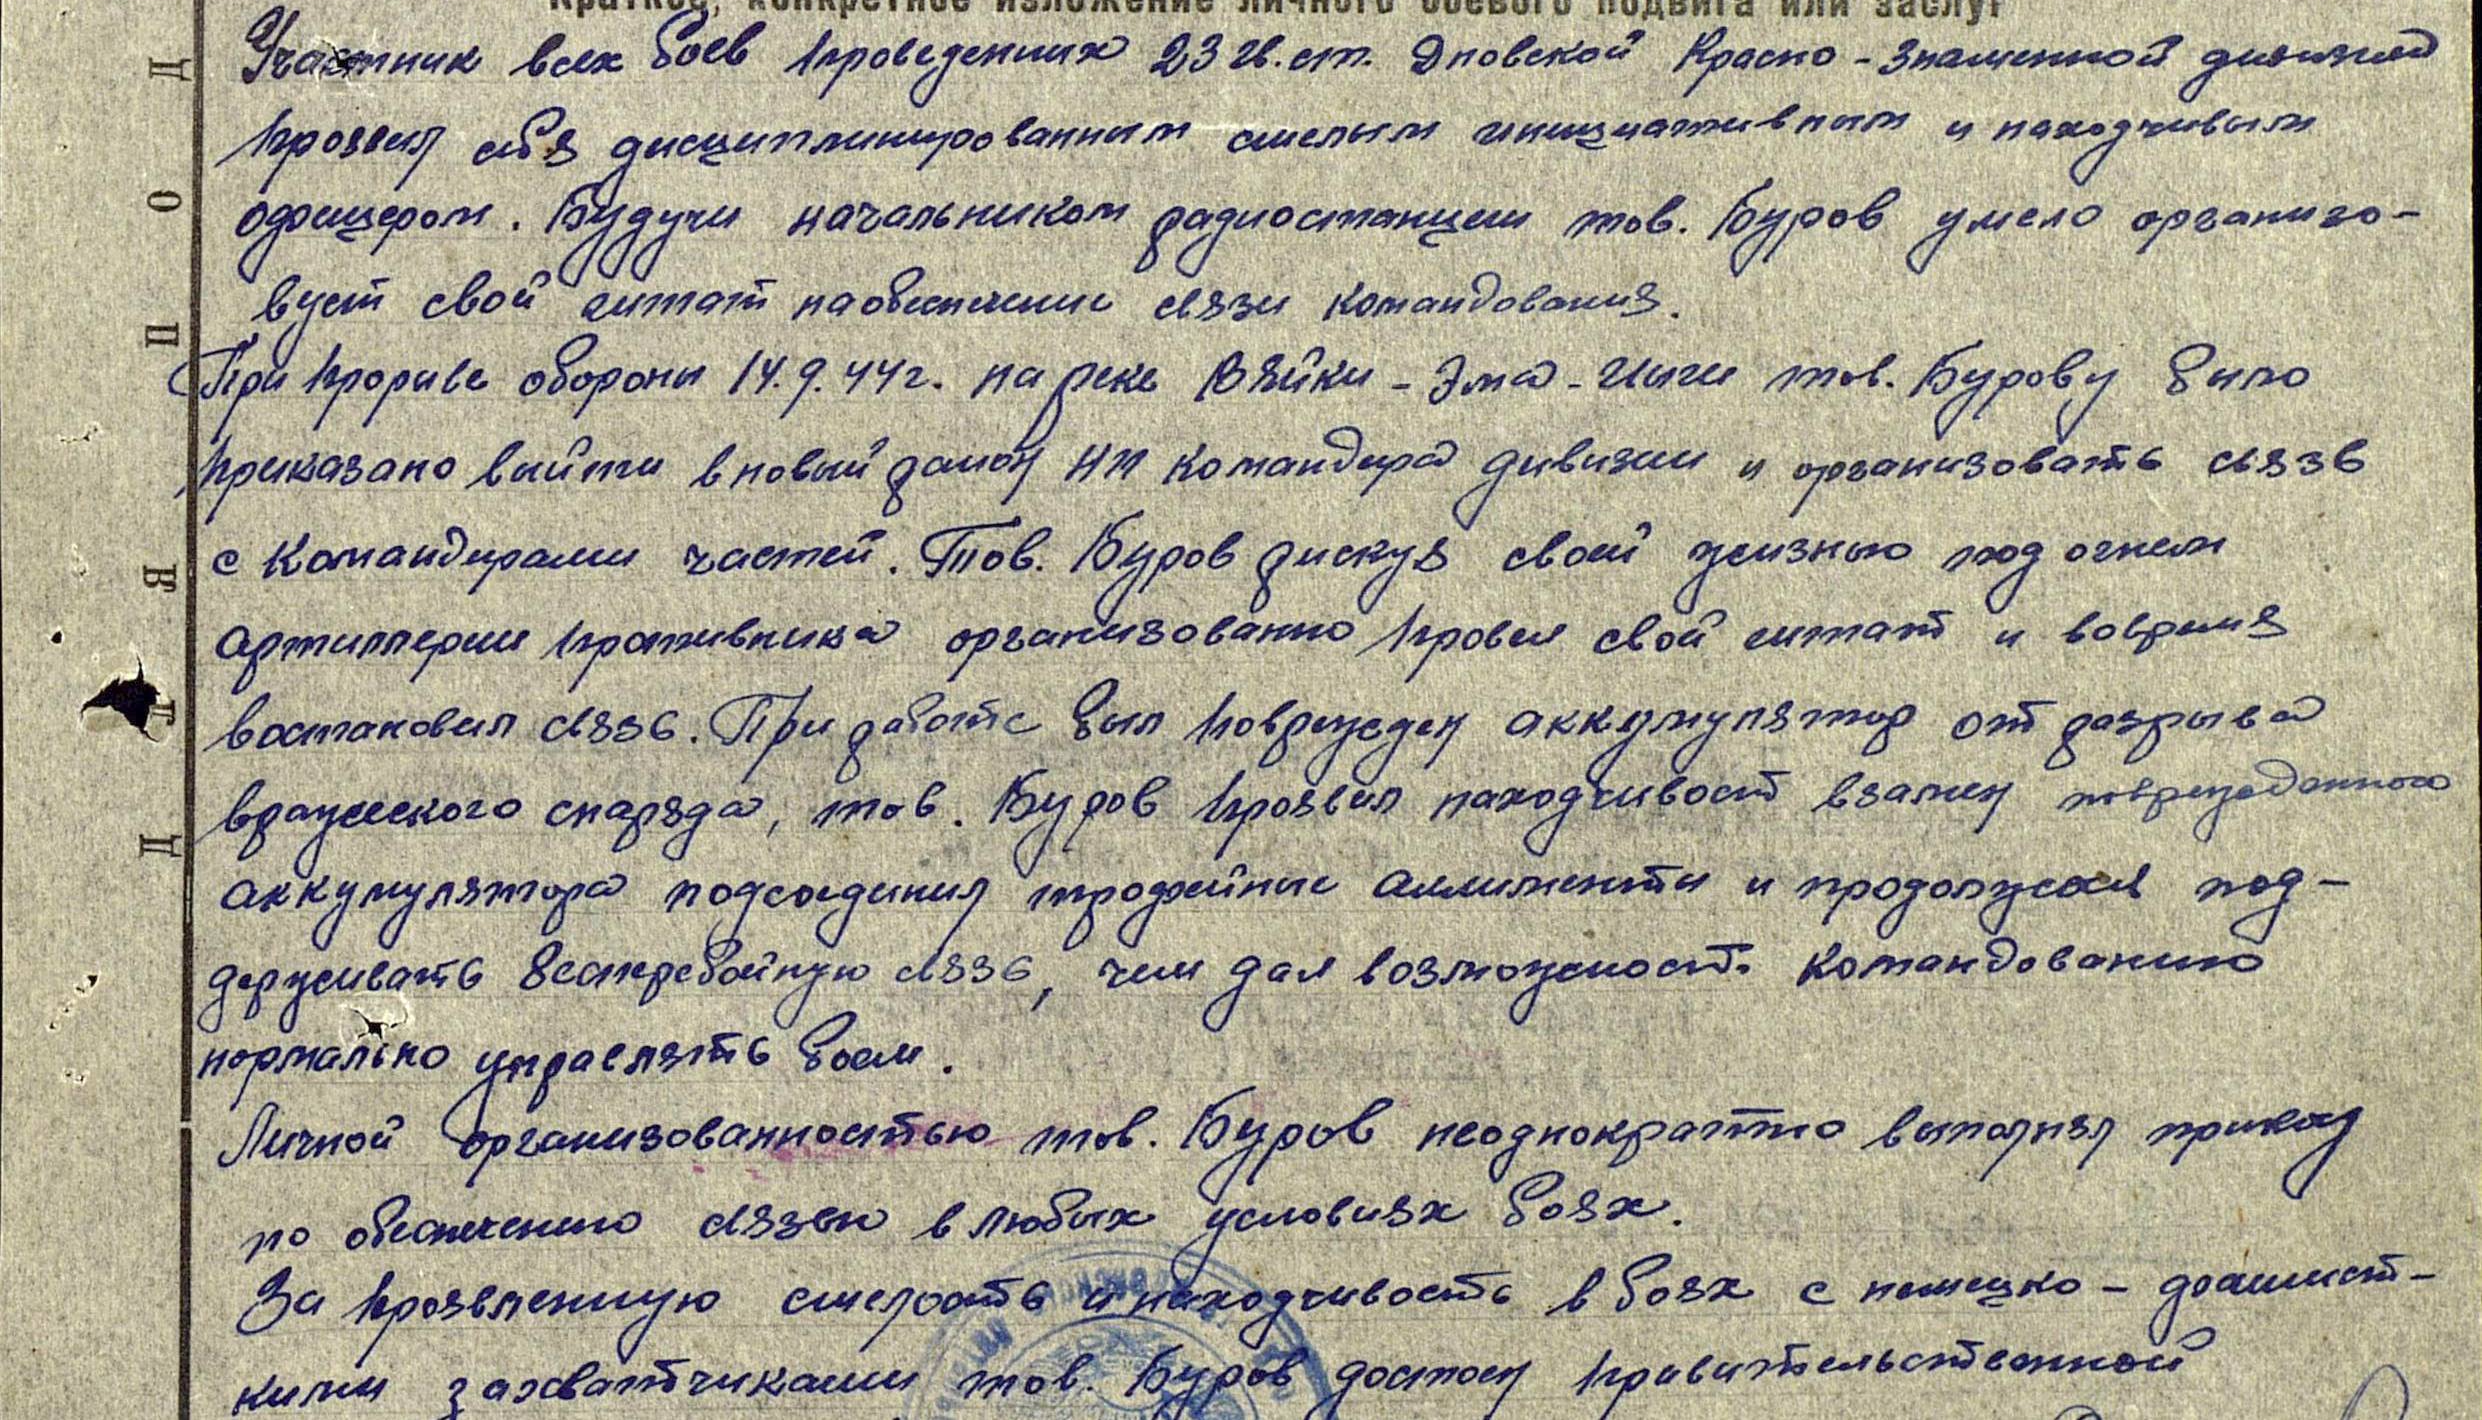 Краткое, конкретное изложение личного боевого подвига или заслуг
Участник всех боев проведенных 23 гв. ст. Дновской Красно-Знаменной дивизией
проявил себя дисциплинированным смелым инициативным и находчивым
офицером. Будучи начальником радиостанции тов. Буров умело организо-
вует свой штат на обеспечение связи командования.
При прорыве обороны 14.9.44г. на реке Вяйки-Эма-Иыги тов. Бурову было
приказано выйти в новый район НП командира дивизии и организовать связь
с командирами частей. Тов. Буров рискуя своей жизнью под огнем
артиллерии противника организованно провел свой штат и вовремя
востановил связь. При работе был поврежден аккумулятор от разрыва
вражеского снаряда, тов. Буров проявил находчивост взамен поврежденного
аккумулятора подсоединил трофейные алименты и продолжал под-
держивать бесперебойную связь, чем дал возможност. командованию
нормально управлять боем.
Личной организованностью тов. Буров неоднократно выполнял приказ
по обеспечению связью в любых условиях боях.
За проявленную смелость и находчивость в боях с немецко-фашист-
кими захватчиками тов. Буров достоен правительственной
П
О
Д
В
И
Г